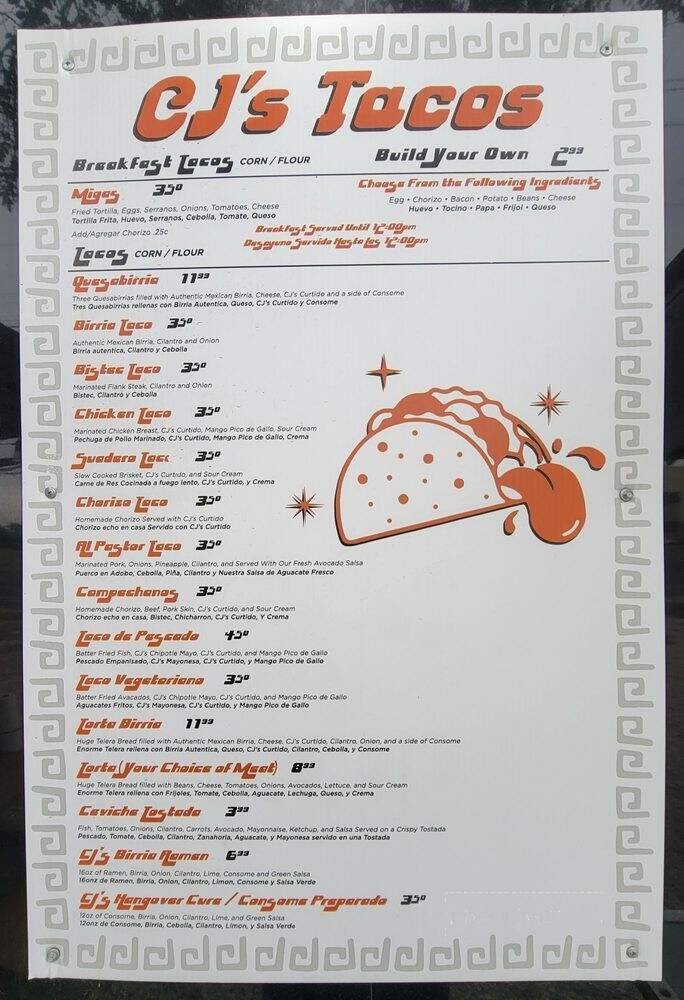 CJ's Tacos
Breakfast Tacos CORN / FLOUR
Build Your Own 2.99
Migas 3.50
Fried Tortilla, Eggs, Serranos, Onions, Tomatoes, Cheese
Tortilla Frita, Huevo, Serranos, Cebolla, Tomate, Queso
Add/Agregar Chorizo .25c
Choose From the Following Ingrediants
Egg • Chorizo • Bacon • Potato • Beans • Cheese
Huevo • Tocino • Papa • Frijol • Queso
Breakfast Served Until 12:00pm
Desayuno Servido Hasta Las 12:00pm
Tacos CORN / FLOUR
Quesabirria 11.99
Three Quesabirrias filled with Authentic Mexican Birria, Cheese, CJ's Curtido and a side of Consome
Tres Quesabirrias rellenas con Birria Autentica, Queso, CJ's Curtido y Consome
Birria Taco 3.50
Authentic Mexican Birria, Cilantro and Onion
Birria autentica, Cilantro y Cebolla
Bistec Taco 3.50
Marinated Flank Steak, Cilantro and Onion
Bistec, Cilantro y Cebolla
Chicken Taco 3.50
Marinated Chicken Breast, CJ's Curtido, Mango Pico de Gallo, Sour Cream
Pechuga de Pollo Marinado, CJ's Curtido, Mango Pico de Gallo, Crema
Suadero Taco 3.50
Slow Cooked Brisket, CJ's Curtido, and Sour Cream
Carne de Res Cocinada a fuego lento, CJ's Curtido, y Crema
Chorizo Taco 3.50
Homemade Chorizo Served with CJ's Curtido
Chorizo echo en casa Servido con CJ's Curtido
Al Pastor Taco 3.50
Marinated Pork, Onions, Pineapple, Cilantro, and Served With Our Fresh Avocado Salsa
Puerco en Adobo, Cebolla, Piña, Cilantro y Nuestra Salsa de Aguacate Fresco
Campechanos 3.50
Homemade Chorizo, Beef, Pork Skin, CJ's Curtido, and Sour Cream
Chorizo echo en casa, Bistec, Chicharron, CJ's Curtido, Y Crema
Taco de Pescado 4.50
Batter Fried Fish, CJ's Chipotle Mayo, CJ's Curtido, and Mango Pico de Gallo
Pescado Empanisado, CJ's Mayonesa, CJ's Curtido, y Mango Pico de Gallo
Taco Vegetariano 3.50
Batter Fried Avacados, CJ's Chipotle Mayo, CJ's Curtido, and Mango Pico de Gallo
Aguacates Fritos, CJ's Mayonesa, CJ's Curtido, y Mango Pico de Gallo
Torta Birria 11.99
Huge Telera Bread filled with Authentic Mexican Birria, Cheese, CJ's Curtido, Cilantro, Onion, and a side of Consome
Enorme Telera rellena con Birria Autentica, Queso, CJ's Curtido, Cilantro, Cebolla, y Consome
Torta (Your Choice of Meat) 8.99
Huge Telera Bread filled with Beans, Cheese, Tomatoes, Onions, Avocados, Lettuce, and Sour Cream
Enorme Telera rellena con Frijoles, Tomate, Cebolla, Aguacate, Lechuga, Queso, y Crema
Ceviche Tostada 3.99
Fish, Tomatoes, Onions, Cilantro, Carrots, Avocado, Mayonnaise, Ketchup, and Salsa Served on a Crispy Tostada
Pescado, Tomate, Cebolla, Cilantro, Zanahoria, Aguacate, y Mayonesa servido en una Tostada
CJ's Birria Ramen 6.99
16oz of Ramen, Birria, Onion, Cilantro, Lime, Consome and Green Salsa
16onz de Ramen, Birria, Onion, Cilantro, Limon, Consome y Salsa Verde
CJ's Hangover Cure / Consome Preparado 3.50
12oz of Consome, Birria, Onion, Cilantro, Lime, and Green Salsa
12onz de Consome, Birria, Cebolla, Cilantro, Limon, y Salsa Verde